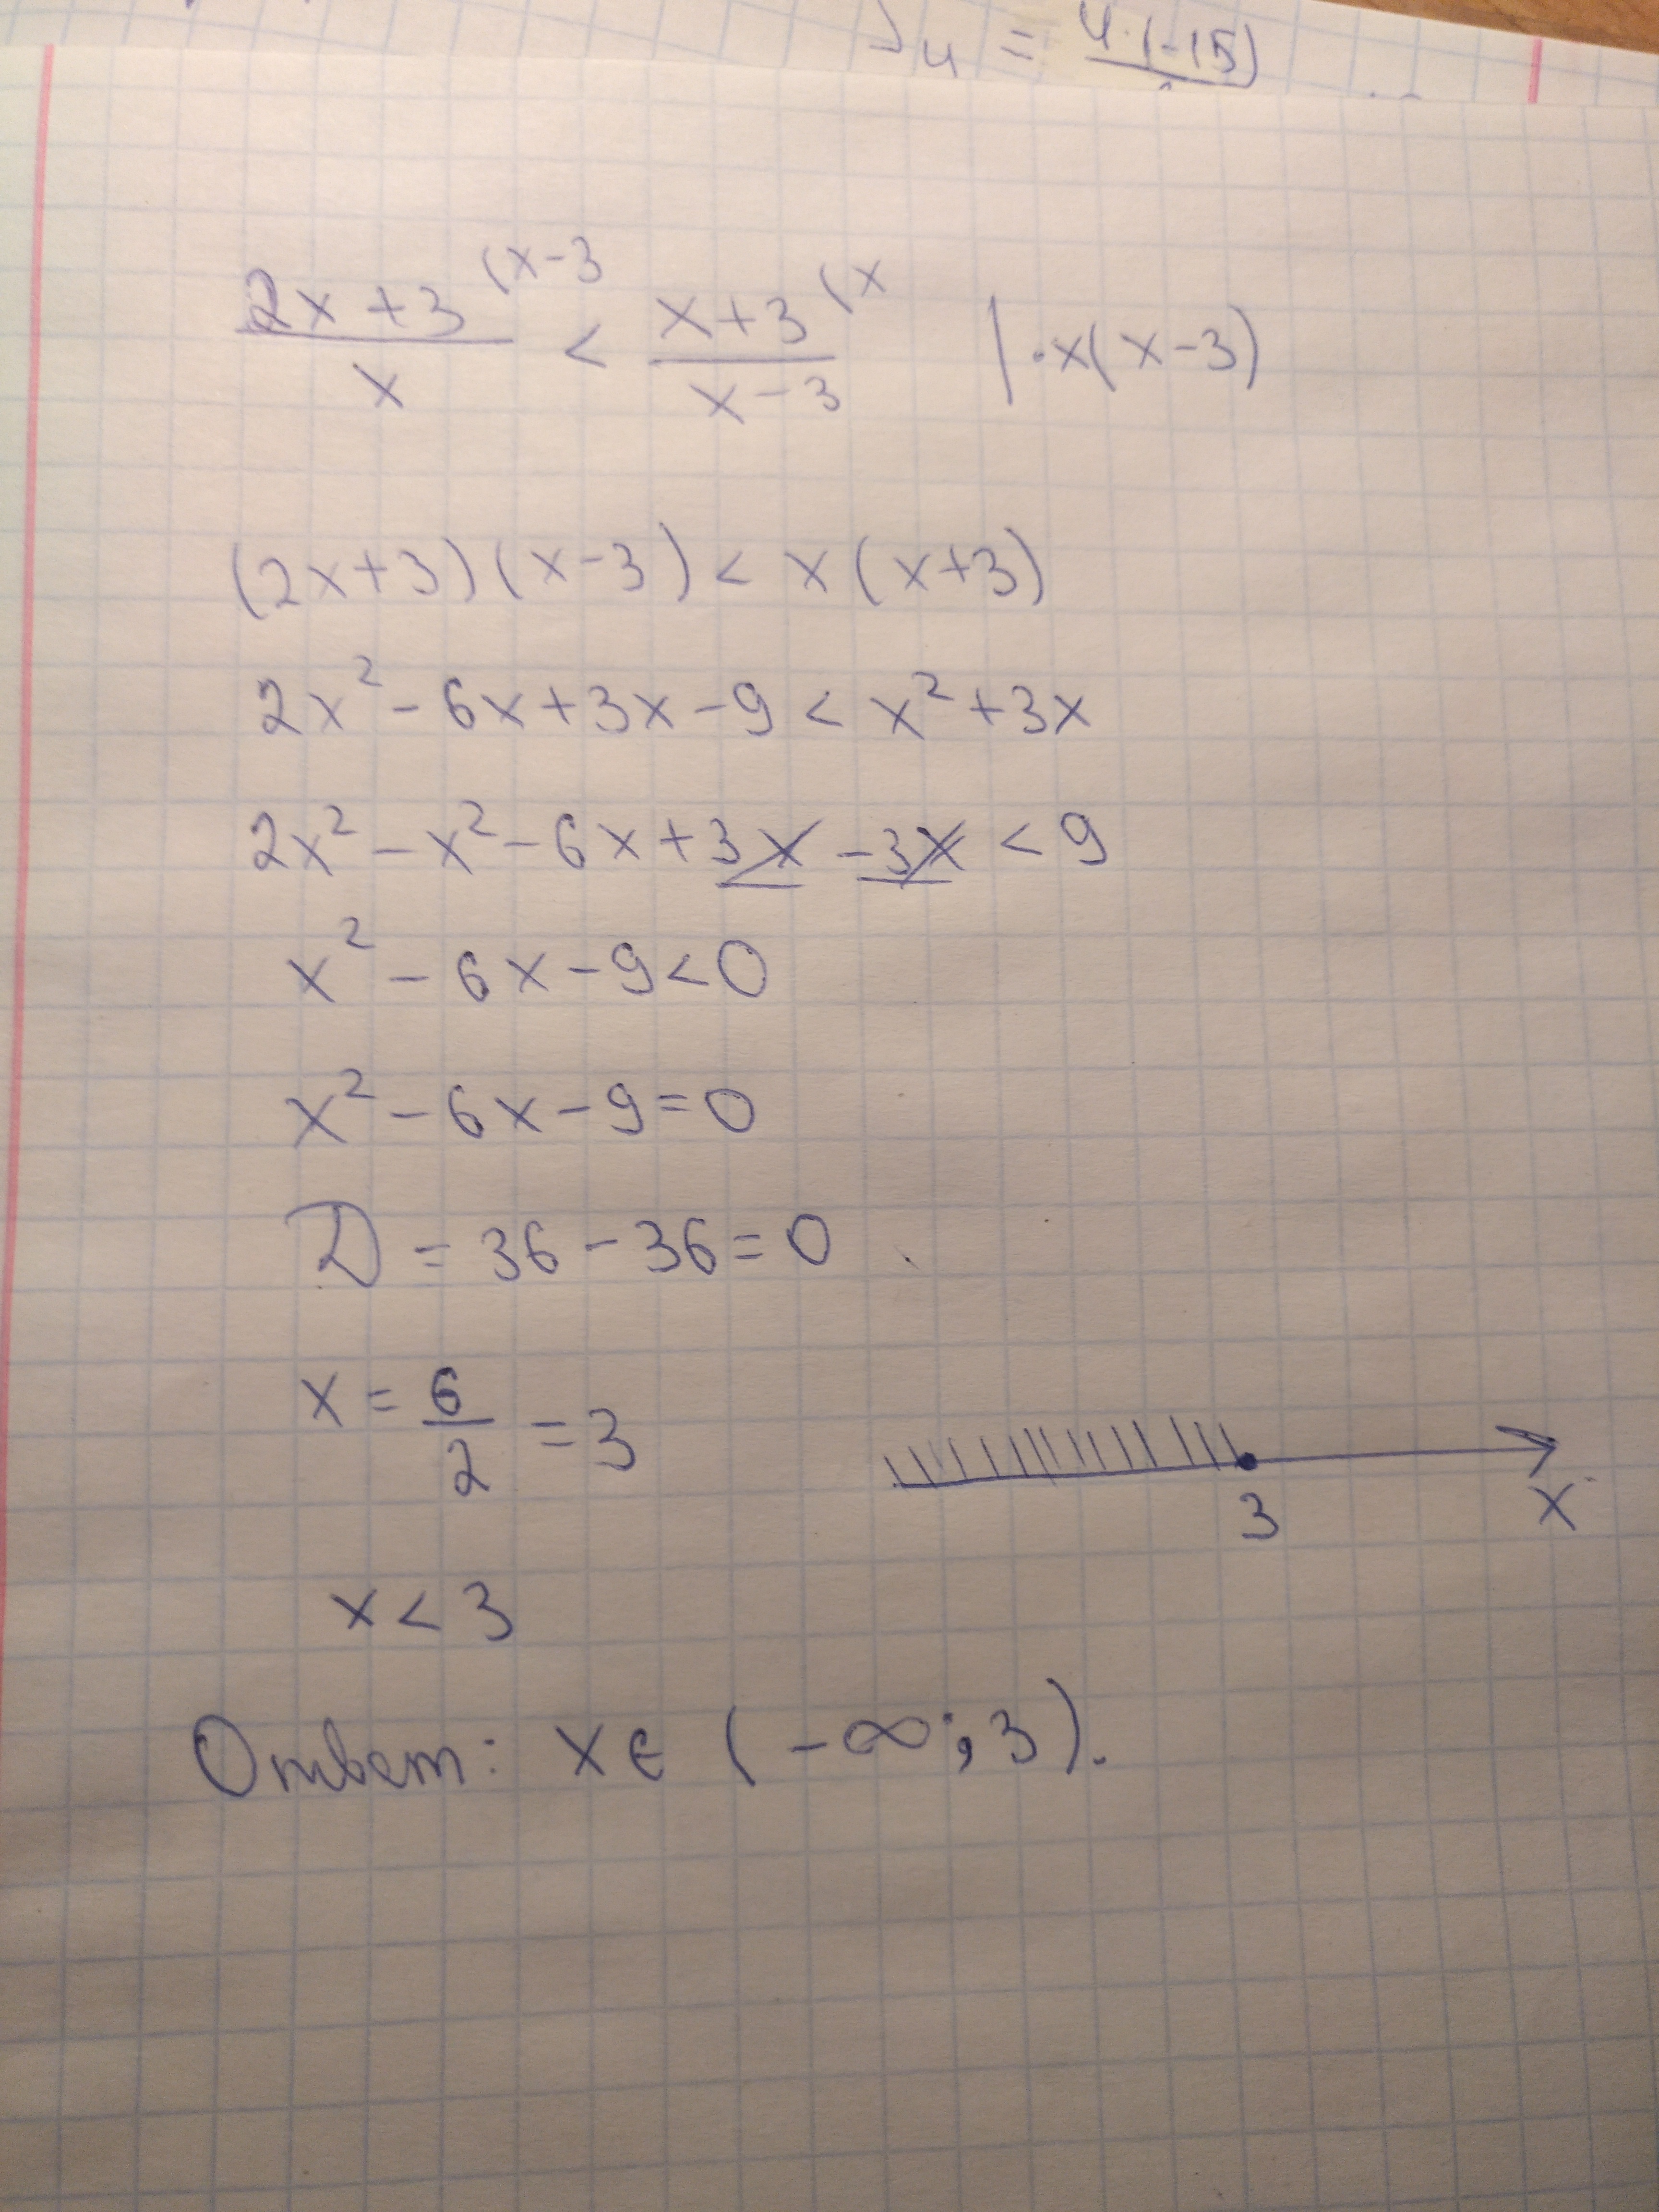 4 = 4·(-15)
2x+3 (x-3 / x < x+3 (x / x-3 | ·x(x-3)
(2x+3)(x-3) < x(x+3)
2x² - 6x + 3x - 9 < x² + 3x
2x² - x² - 6x + 3x - 3x < 9
x² - 6x - 9 < 0
x² - 6x - 9 = 0
D = 36 - 36 = 0
x = 6/2 = 3
3 x
x < 3
Ответ: x ∈ (-∞; 3).